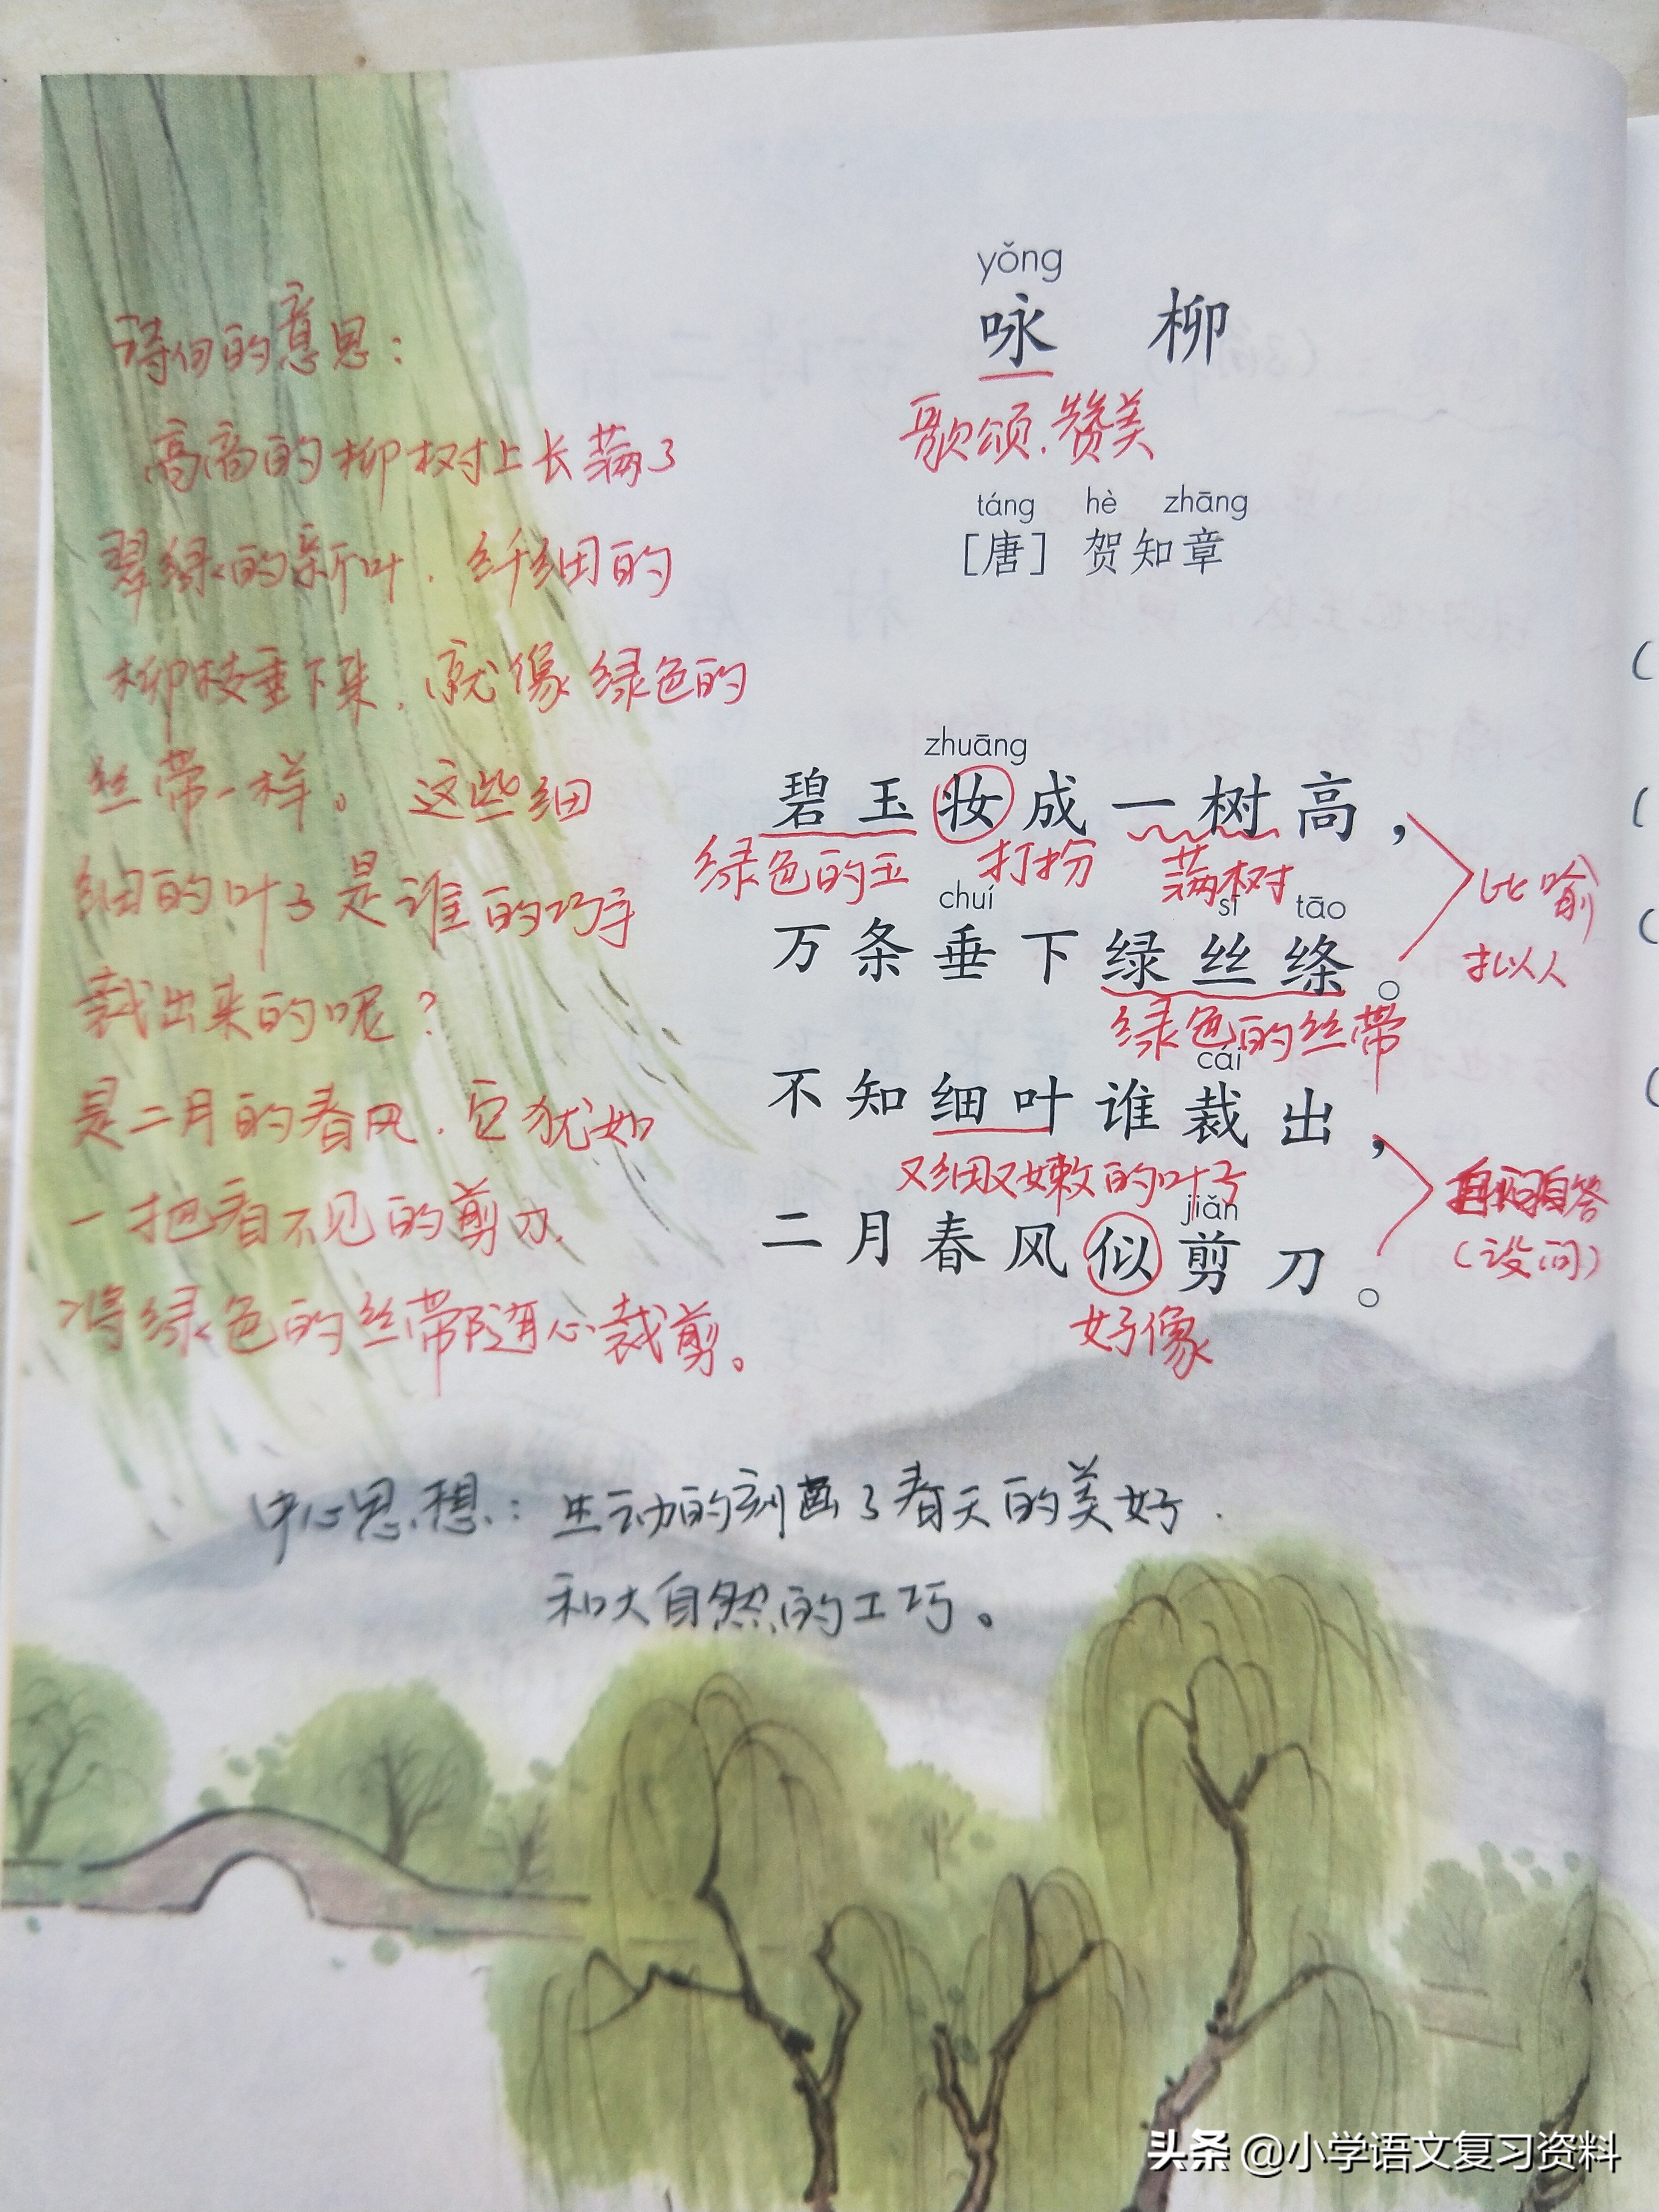 yǒng
咏 柳
歌颂.赞美
táng hè zhāng
[唐] 贺知章
诗句的意思：
高高的柳树上长满了
翠绿的新叶.纤细的
柳枝垂下来.就像绿色的
丝带一样。这些细
细的叶子是谁的巧手
裁出来的呢？
是二月的春风.它犹如
一把看不见的剪刀.
将绿色的丝带随心裁剪。
zhuāng
碧玉妆成一树高，
绿色的玉 打扮 满树
chuí sī tāo
万条垂下绿丝绦。
绿色的丝带
比喻
拟人
cái
不知细叶谁裁出，
又细又嫩的叶子
jiǎn
二月春风似剪刀。
好像
自问自答
(设问)
中心思想：生动的刻画了春天的美好.
和大自然的工巧。
头条 @小学语文复习资料